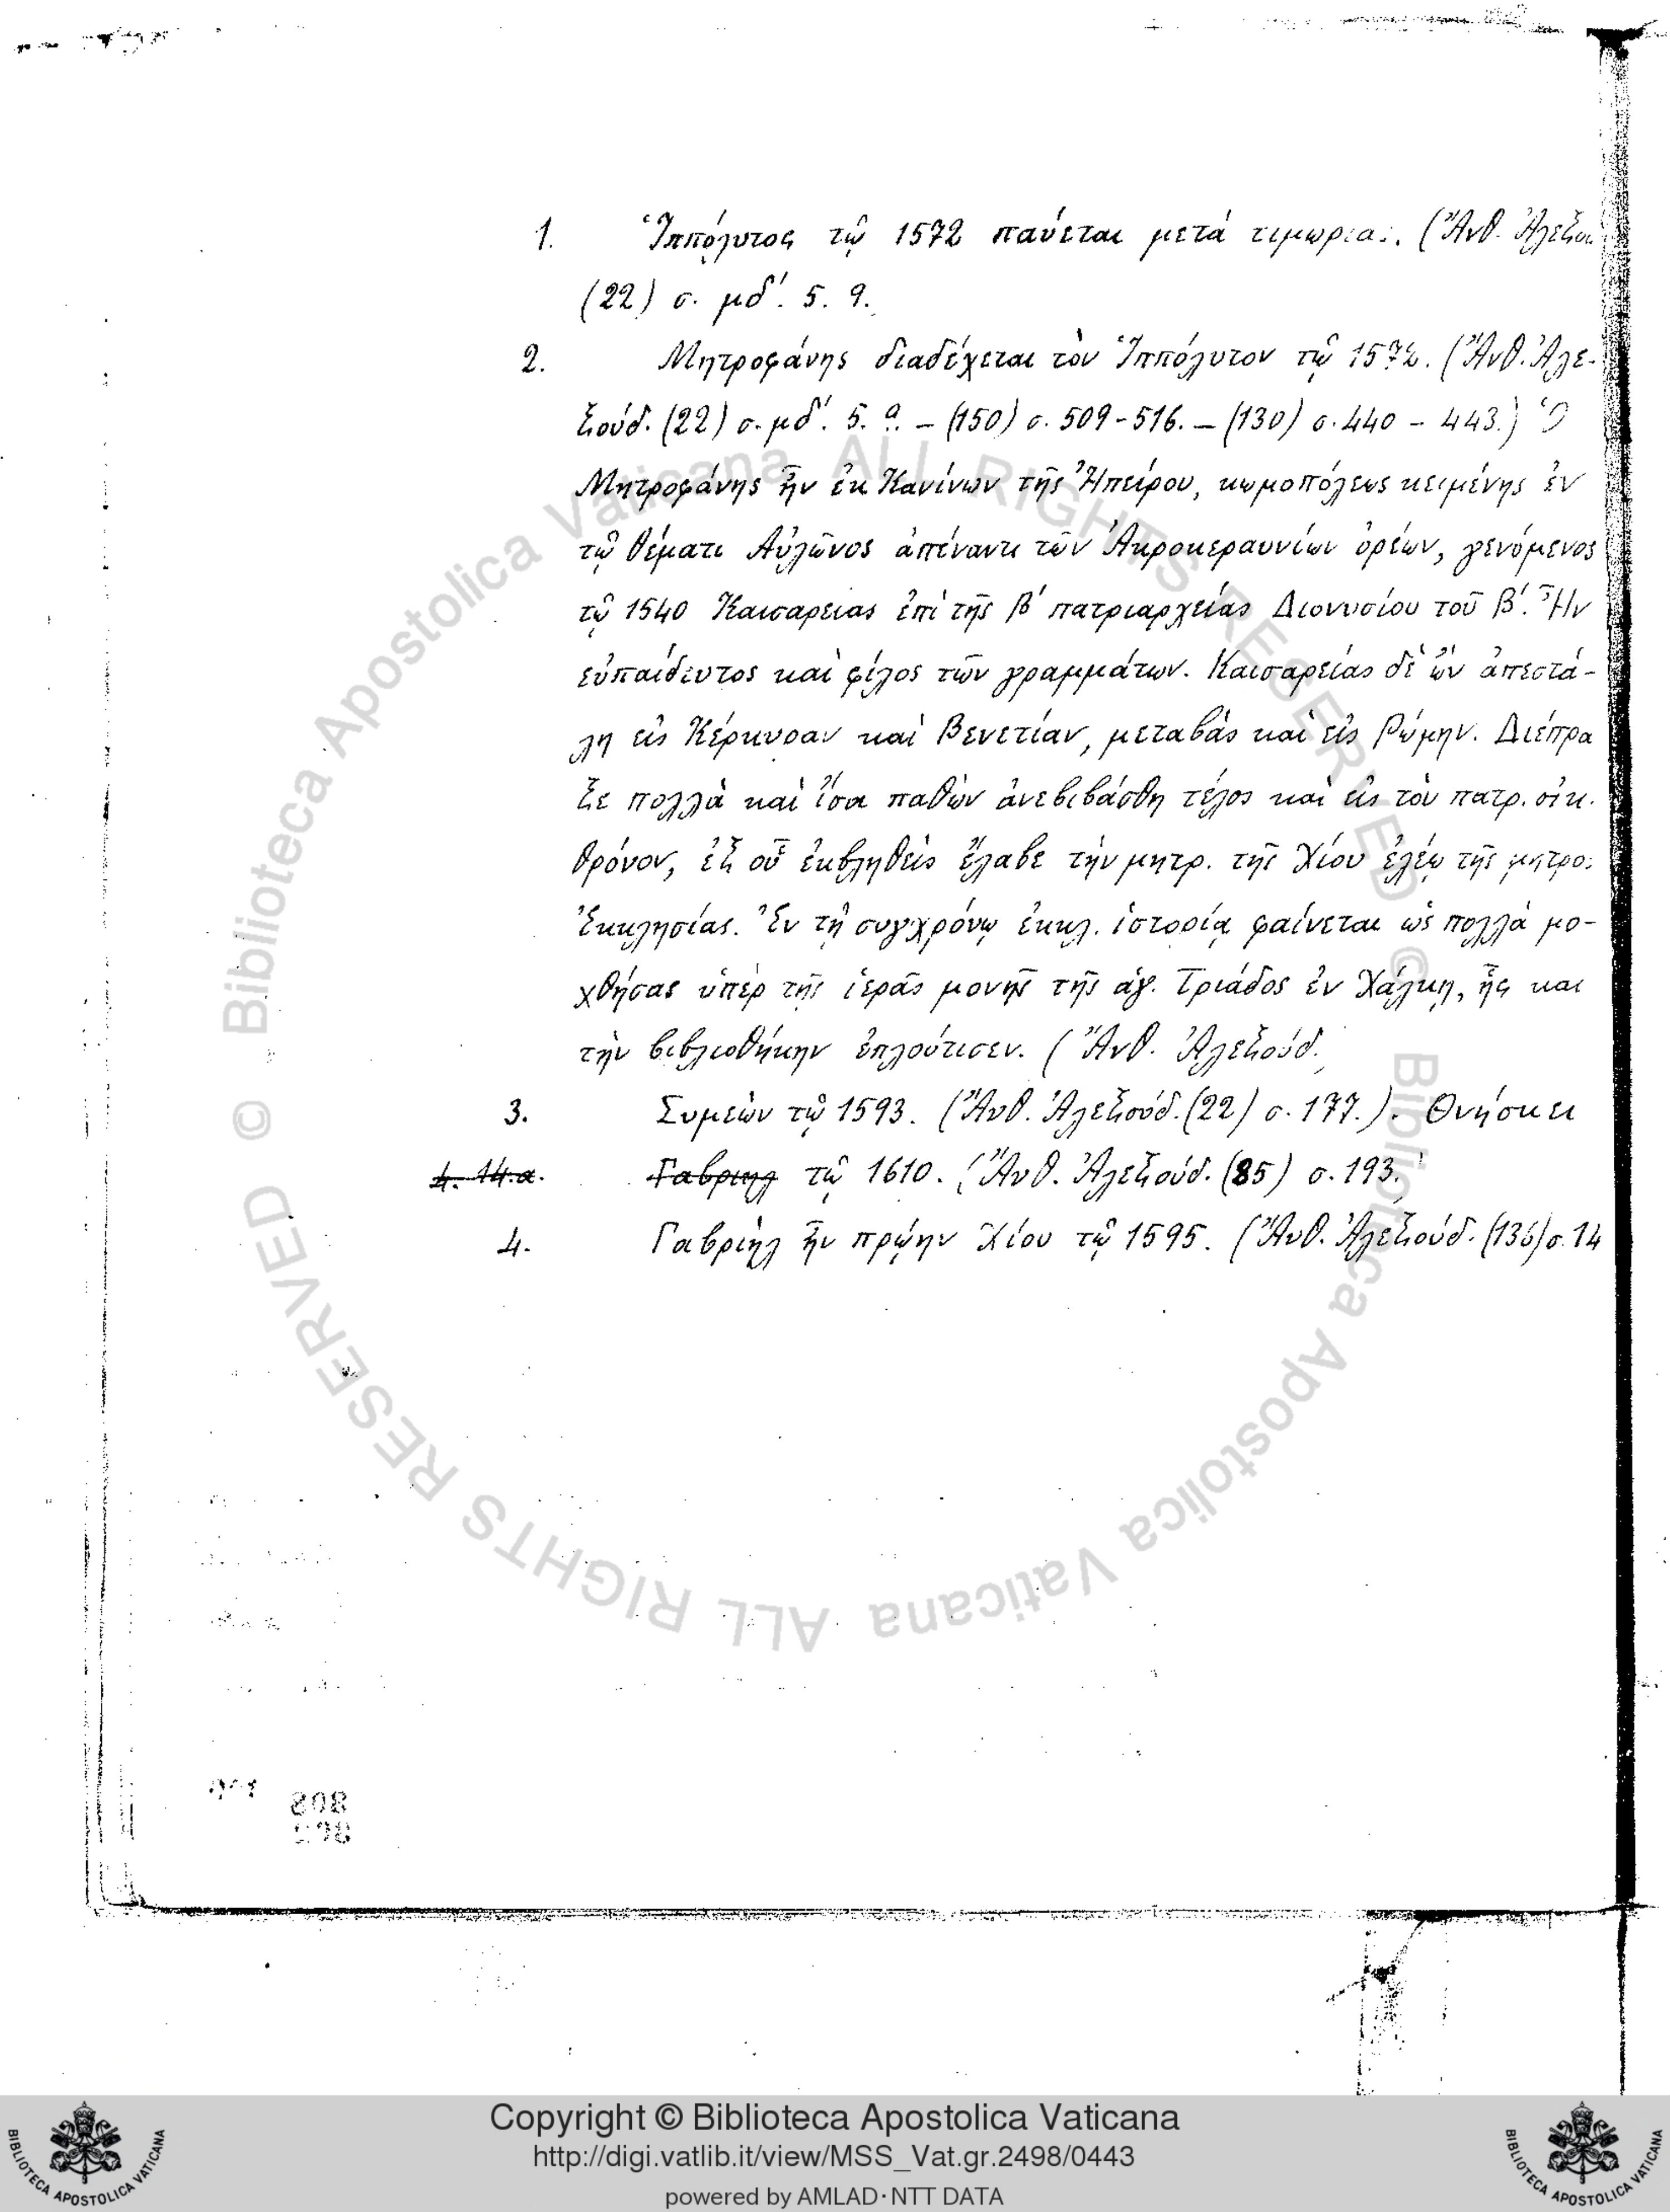 1. Ἱππόλυτος τῷ 1572 παύεται μετά τιμωρίας. (Ἄνθ. Ἀλεξου
(22) σ. μδ΄. 5. 9.
2. Μητροφάνης διαδέχεται τὸν Ἱππόλυτον τῷ 1572. (Ἄνθ. Ἀλε-
ξούδ. (22) σ. μδ΄. 5. 9. – (150) σ. 509-516. – (130) σ. 440 – 443.) Ὁ
Μητροφάνης ἦν ἐκ Κανίνων τῆς Ἠπείρου, κωμοπόλεως κειμένης ἐν
τῷ θέματι Αὐλῶνος ἀπέναντι τῶν Ἀκροκεραυνίων ὀρέων, γενόμενος
τῷ 1540 Καισαρείας ἐπὶ τῆς β΄ πατριαρχείας Διονυσίου τοῦ Β΄. Ἦν
εὐπαίδευτος καὶ φίλος τῶν γραμμάτων. Καισαρείας δὲ ὢν ἀπεστά-
λη εἰς Κέρκυραν καὶ Βενετίαν, μεταβὰς καὶ εἰς Ρώμην. Διέπρα
ξε πολλὰ καὶ ἴσα παθὼν ἀνεβιβάσθη τέλος καὶ εἰς τὸν πατρ. οἰκ.
θρόνον, ἐξ οὗ ἐκβληθεὶς ἔλαβε τὴν μητρ. τῆς Χίου ἐλέῳ τῆς μητρο:
Ἐκκλησίας. Ἐν τῇ συγχρόνῳ ἐκκλ. ἱστορίᾳ φαίνεται ὡς πολλὰ μο-
χθήσας ὑπὲρ τῆς ἱερᾶς μονῆς τῆς ἁγ. Τριάδος ἐν Χάλκῃ, ἧς και
τὴν βιβλιοθήκην ἐπλούτισεν. (Ἄνθ. Ἀλεξούδ.
3. Συμεὼν τῷ 1593. (Ἄνθ. Ἀλεξούδ. (22) σ. 177.). Θνήσκει
4. 14.α. Γαβριηλ τῷ 1610. (Ἄνθ. Ἀλεξούδ. (85) σ. 193.
4. Γαβριὴλ ἦν πρῴην Χίου τῷ 1595. (Ἄνθ. Ἀλεξούδ. (136) σ. 14
808
Biblioteca Apostolica Vaticana ALL RIGHTS RESERVED © Biblioteca Apostolica Vaticana ALL RIGHTS RESERVED ©
Copyright © Biblioteca Apostolica Vaticana
http://digi.vatlib.it/view/MSS_Vat.gr.2498/0443
powered by AMLAD·NTT DATA
BIBLIOTECA APOSTOLICA VATICANA
BIBLIOTECA APOSTOLICA VATICANA